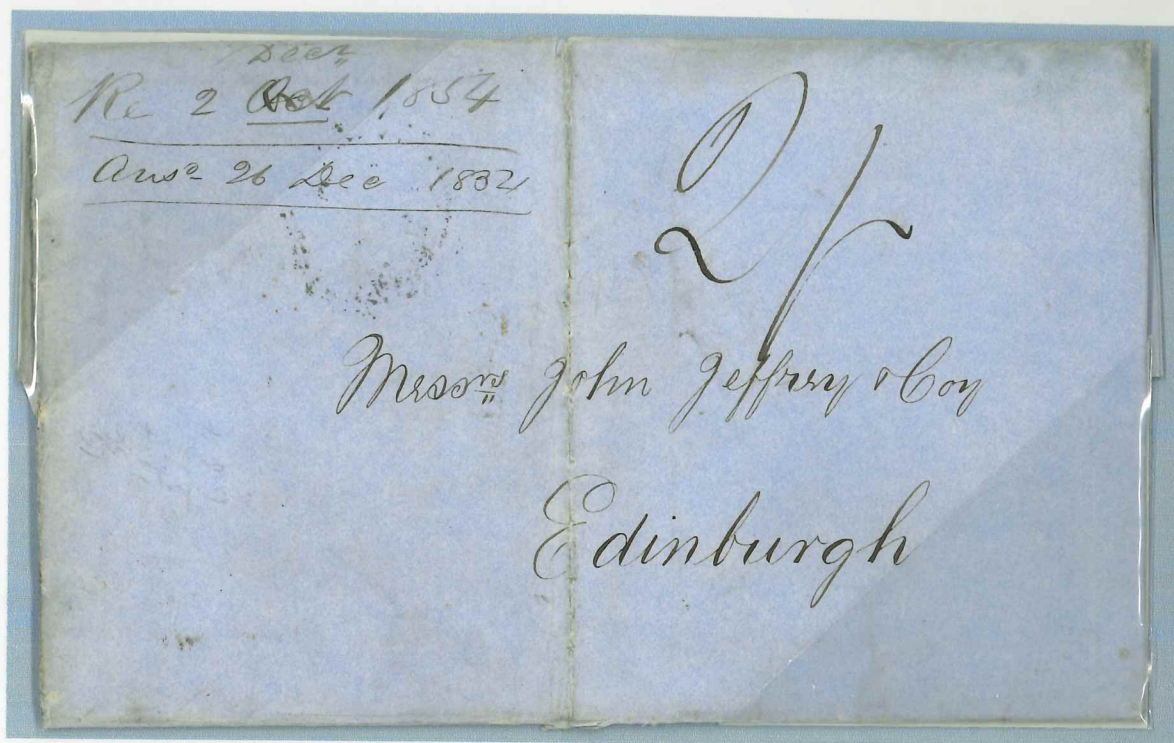 Decr
Re 2 Oct 1854
Ansd 26 Dec 1854
2/
Messrs John Jeffrey & Coy
Edinburgh